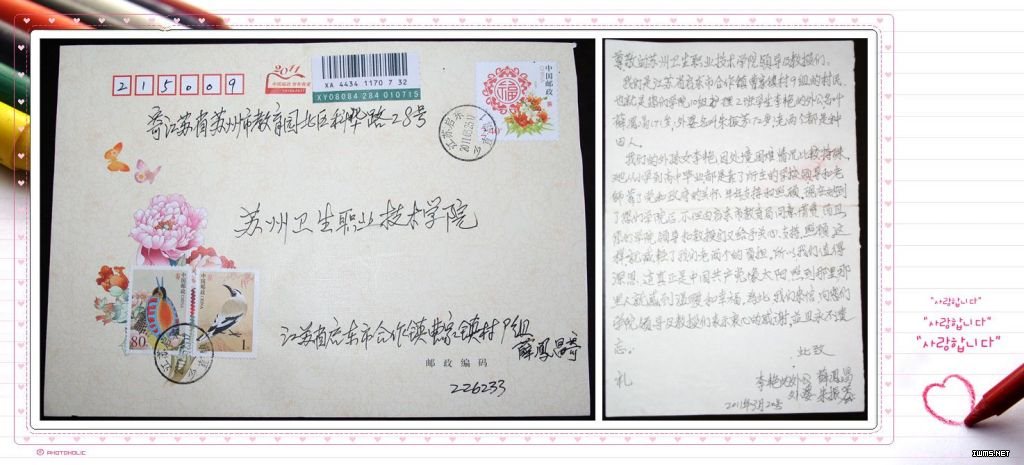 215009
2011
XA 4434 1170 7 32
XY08084 284 010715
中国邮政
寄江苏省苏州市教育园北区科华路28号
苏州卫生职业技术学院
中国邮政
中国邮政
80分
江苏省启东市合作镇曹家镇村9组
薛凤昌寄
邮政编码
226233
尊敬的苏州卫生职业技术学院领导及教授们。
我们是江苏省启东市合作镇曹家镇村9组的村民
也就是您们学院10级护理2班学生李艳的外公名叫
薛凤昌71岁,外婆名叫朱振芳72岁,老两个都是种
田人。
我们的外孙女李艳,因处境困难情况比较特殊,
她从小学到高中毕业都是靠了所在的学校领导和老
师靠了党和政府的关怀
支持和照顾,现在她到
了您们学院后,不但由启东市教育局
而且
您们学院领导和教授们又给予关心、支持、照顾,这
样就减轻了我们老两个的负担,所以我们值得
深思,这真正是中国共产党像太阳照到那里那
里人就感到温暖和幸福,为此我们来信向您们
学院领导及教授们表示衷心的感谢,并且永不遗
忘。
此致
礼
李艳的外公 薛凤昌
外婆 朱振芳
2011年3月20号
"사랑합니다"
"사랑합니다"
"사랑합니다"
PHOTOHOLIC
IWMS.NET